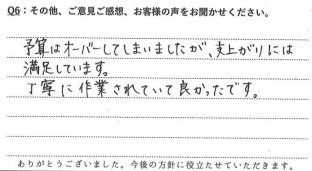 Q6：その他、ご意見ご感想、お客様の声をお聞かせください。
予算はオーバーしてしまいましたが、支上がりには
満足しています。
丁寧に作業されていて良かったです。
ありがとうございました。今後の方針に役立たせていただきます。